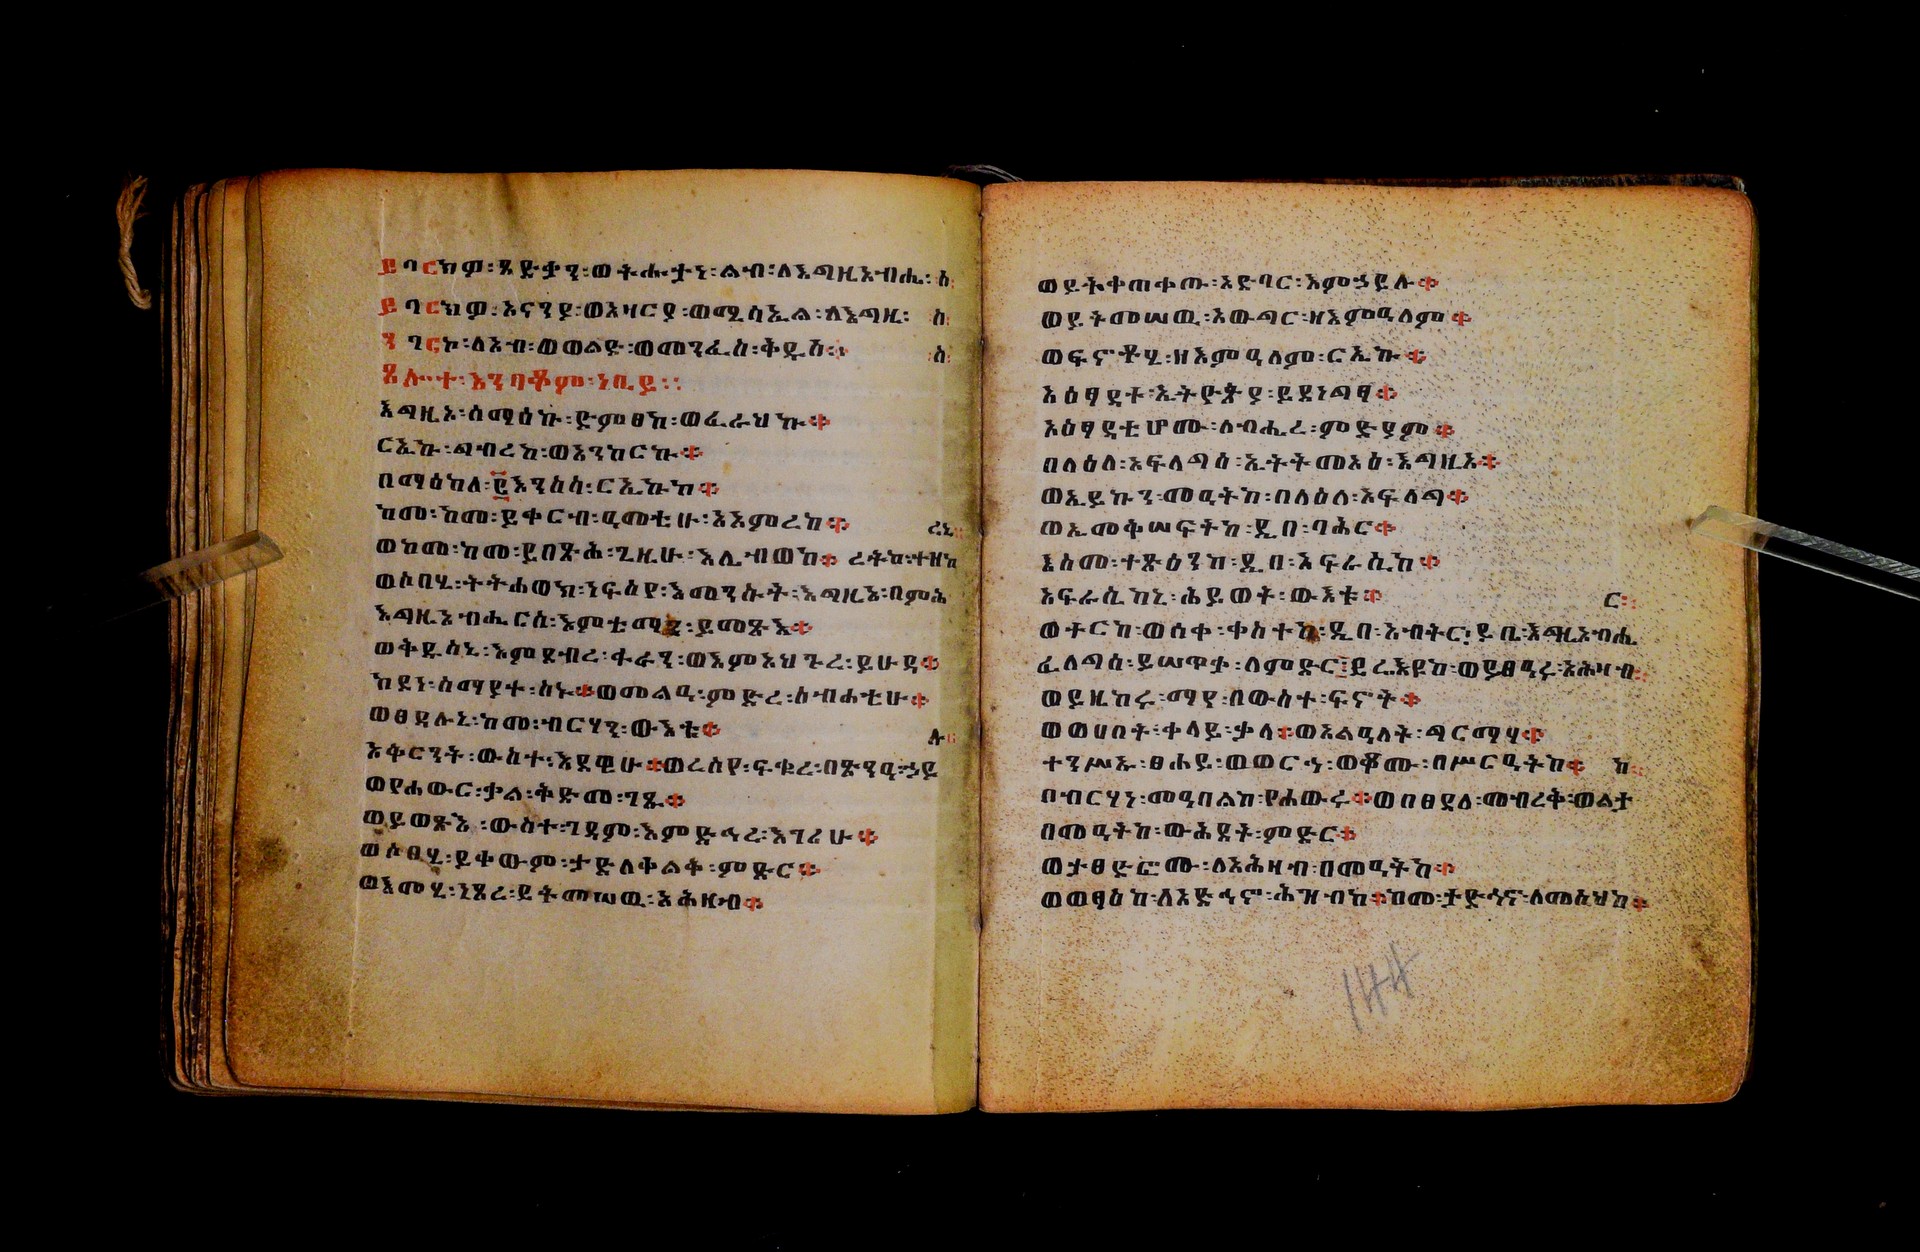 ይባርክዎ፡ጻድቃን፡ወትሑታነ፡ልብ፡ለእግዚአብሔ፡ስ፡
ይባርክዎ፡አናንያ፡ወአዛርያ፡ወሚሳኤል፡ለእግዚ፡ ስ፡
ን ባርኮ፡ለአብ፡ወወልድ፡ወመንፈስ፡ቅዱስ፡ ስ፡
ጸሎተ፡እንባቆም፡ነቢይ፡፡
እግዚኦ፡ሰማዕኩ፡ድምፀከ፡ወፈራህኩ፨
ርኢኩ፡ግብረከ፡ወአንከርኩ፨
በማዕከለ፡፪እንስሳ፡ርኢኩከ፨
ከመ፡ከመ፡ይቀርብ፡ዓመቲሁ፡አአምረከ፨ ረኒ፡
ወከመ፡ከመ፡ይበጽሕ፡ጊዜሁ፡እሌብወከ፨ ረትከ፡ተዘከ
ወሶበሂ፡ትትሐወክ፡ነፍስየ፡እመንሱት፡እግዚእ፡በምሕ
እግዚአብሔርሰ፡እምቴማን፡ይመጽእ፨
ወቅዱስኒ፡እምደብረ፡ፋራን፡ወእምአህጉረ፡ይሁዳ፨
ከደነ፡ሰማያተ፡ስኑ፨ወመልዓ፡ምድረ፡ስብሐቲሁ፨
ወፀዳሉኒ፡ከመ፡ብርሃን፡ውእቱ፨ ሉ፡
አቅርንት፡ውስተ፡እደዊሁ፨ወረሰየ፡ፍቁረ፡በጽንዓ፡ኃይ
ወየሐውር፡ቃል፡ቅድመ፡ገጹ፨
ወይወጽእ፡ውስተ፡ገዳም፡እምድኅረ፡እገሪሁ፨
ወሶበሂ፡ይቀውም፡ታድለቀልቅ፡ምድር፨
ወእመሂ፡ነጸረ፡ይትመሠዉ፡አሕዛብ፨
ወይትቀጠቀጡ፡አድባር፡እምኃይሉ፨
ወይትመሠዉ፡አውግር፡ዘእምዓለም፨
ወፍኖቶሂ፡ዘእምዓለም፡ርኢኩ፨
አዕፃደተ፡ኢትዮጵያ፡ይደነግፃ፨
አዕፃዲቲሆሙ፡ለብሔረ፡ምድያም፨
በላዕለ፡አፍላግስ፡ኢትትመአዕ፡እግዚአ፨
ወኢይኩን፡መዓትከ፡በላዕለ፡አፍላግ፨
ወኢመቅሠፍትከ፡ዲበ፡ባሕር፨
እስመ፡ተጽዕንከ፡ዲበ፡አፍራሲከ፨
አፍራሲከኒ፡ሕይወት፡ውእቱ፨ ር፡
ወትርከ፡ወሰቀ፡ቀስተከ፡ዲበ፡አብትር፡ይቤ፡እግዚአብሔ
ፈለግስ፡ይሠጥቃ፡ለምድር፡ይሬእዩከ፡ወይፀዓሩ፡አሕዛብ፡
ወይዚከሩ፡ማየ፡በውስተ፡ፍኖት፨
ወወሀበት፡ቀላይ፡ቃላ፨ወአልዓለት፡ግርማሃ፨
ተንሥአ፡ፀሐይ፡ወወርኅ፡ወቆሙ፡በሥርዓትከ፨ ከ፡
በብርሃነ፡መዓበልከ፡የሐውሩ፨ወበፀዳለ፡መብረቅ፡ወልታ
በመዓትከ፡ውሕደት፡ምድር፨
ወታፀድፎሙ፡ለአሕዛብ፡በመዓትከ፨
ወወፃዕከ፡ለአድኅኖ፡ሕዝብከ፨ከመ፡ታድኅኖ፡ለመሲህከ፨
144